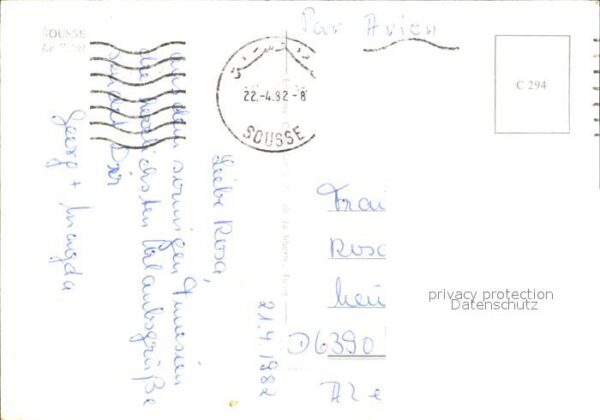 SOUSSE
Par Avion
22.-4.82-8
SOUSSE
C 294
21.4.1982
Liebe Rosa,
aus dem sonnigen Tunesien
die herzlichsten Urlaubsgrüße
sendet Dir
Georg + Magda
Frau
Rosa
D6390
privacy protection
Datenschutz